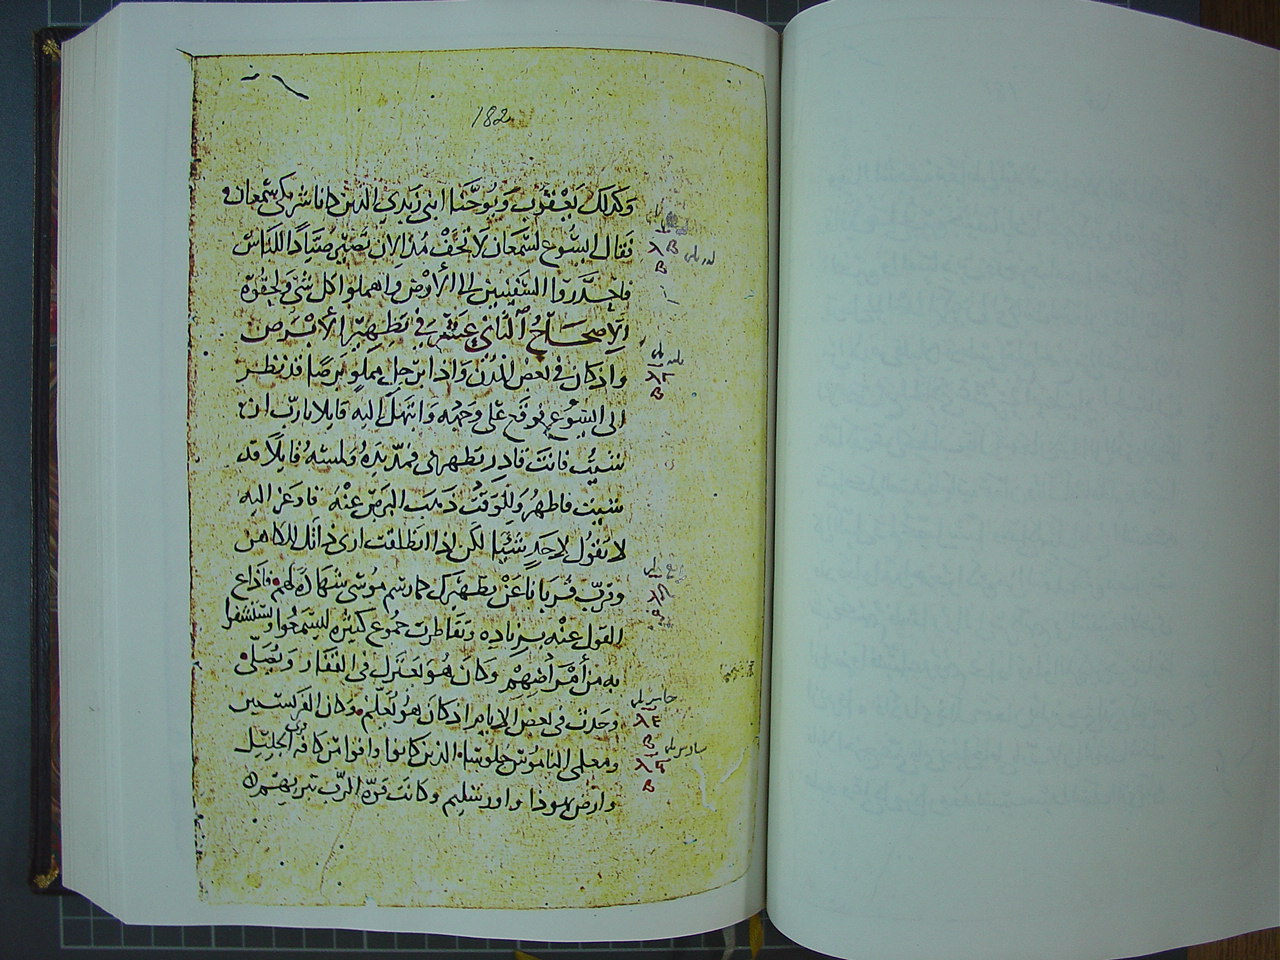 182
وكذلك يعقوب ويوحنا ابني زبدي الذين كانا شريكي شمعان و
فقال اليسوع لشمعان لا تخف مذ الان تصير صيادا للناس
فاحدروا السفينتين الى الارض واهملوا كل شي ولحقوه
الاصحاح الثاني عشر في تطهير الابرص
واذ كان في بعض المدن واذا برجل مملو برصا فذ نظر
الى اليسوع فوقع على وجهه وابتهل اليه قايلا يا رب ان
شيت فانت قادر تطهرني فمد يده ولمسه قايلا قد
شيت فاطهر وللوقت ذهب البرص عنه فاوعز اليه
لا يقول لاحد شيئا لكن اذا انطلقت ارى ذاتك للكاهن
وقرب قربانا عن تطهيرك كما رسم موسى شهادة لهم فاذاع
القول عنه بزياده وتقاطرت جموع كثيره ليسمعوا ويستشفوا
به من أمراضهم وكان هو يعتزل في القفار ويصلي
وحدث في بعض الايام اذ كان هو يعلم وكان الفريسيين
ومعلمي الناموس جلوسا الذين كانوا وافوا من كافة قرى الجليل
وارض يهوذا واورشليم وكانت قوة الرب تبريهم